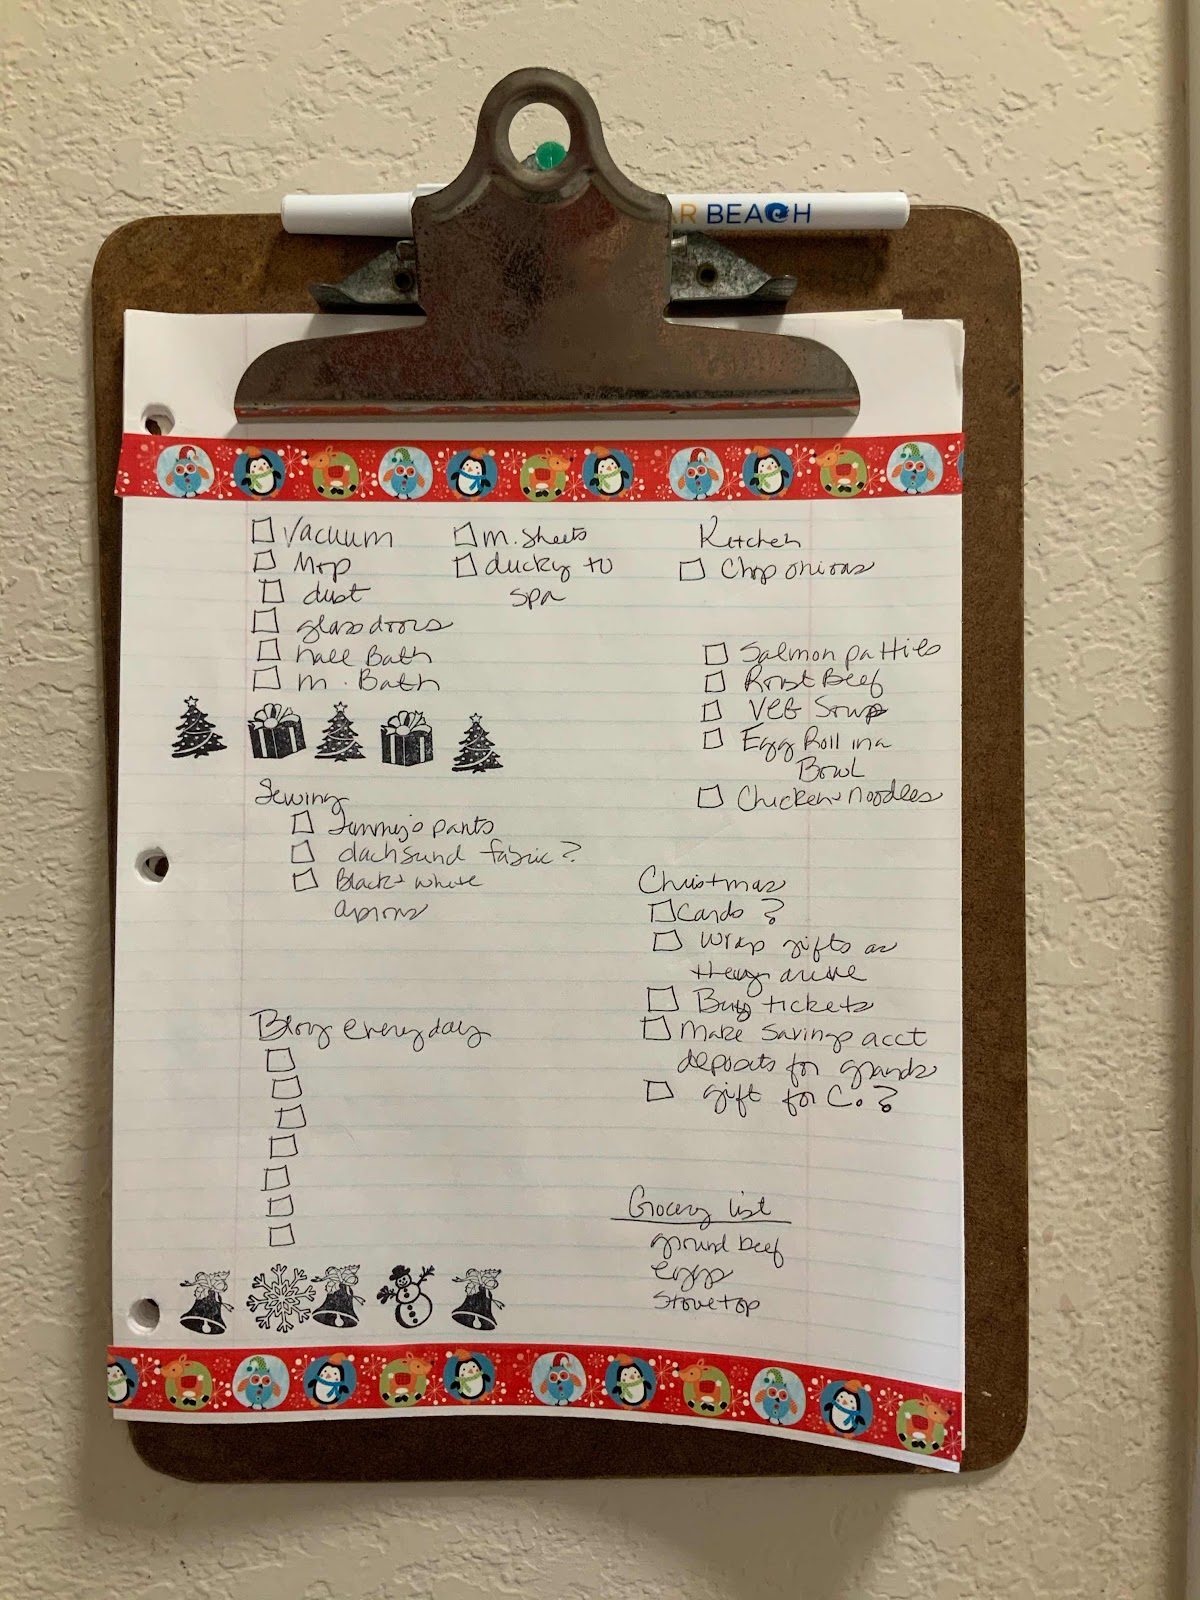 AR BEACH
Vacuum
Mop
dust
glass doors
hall Bath
m. Bath
m. sheets
ducky to
spa
Kitchen
Chop onions
Salmon patties
Roast Beef
Veg Soup
Egg Roll in a
Bowl
Chicken + noodles
Sewing
Jimmy's pants
dachsund fabric?
Black + white
aprons
Christmas
Cards ?
Wrap gifts as
they arrive
Buy tickets
Make savings acct
deposits for grands
gift for C. ?
Blog every day
Grocery list
ground beef
eggs
Stovetop